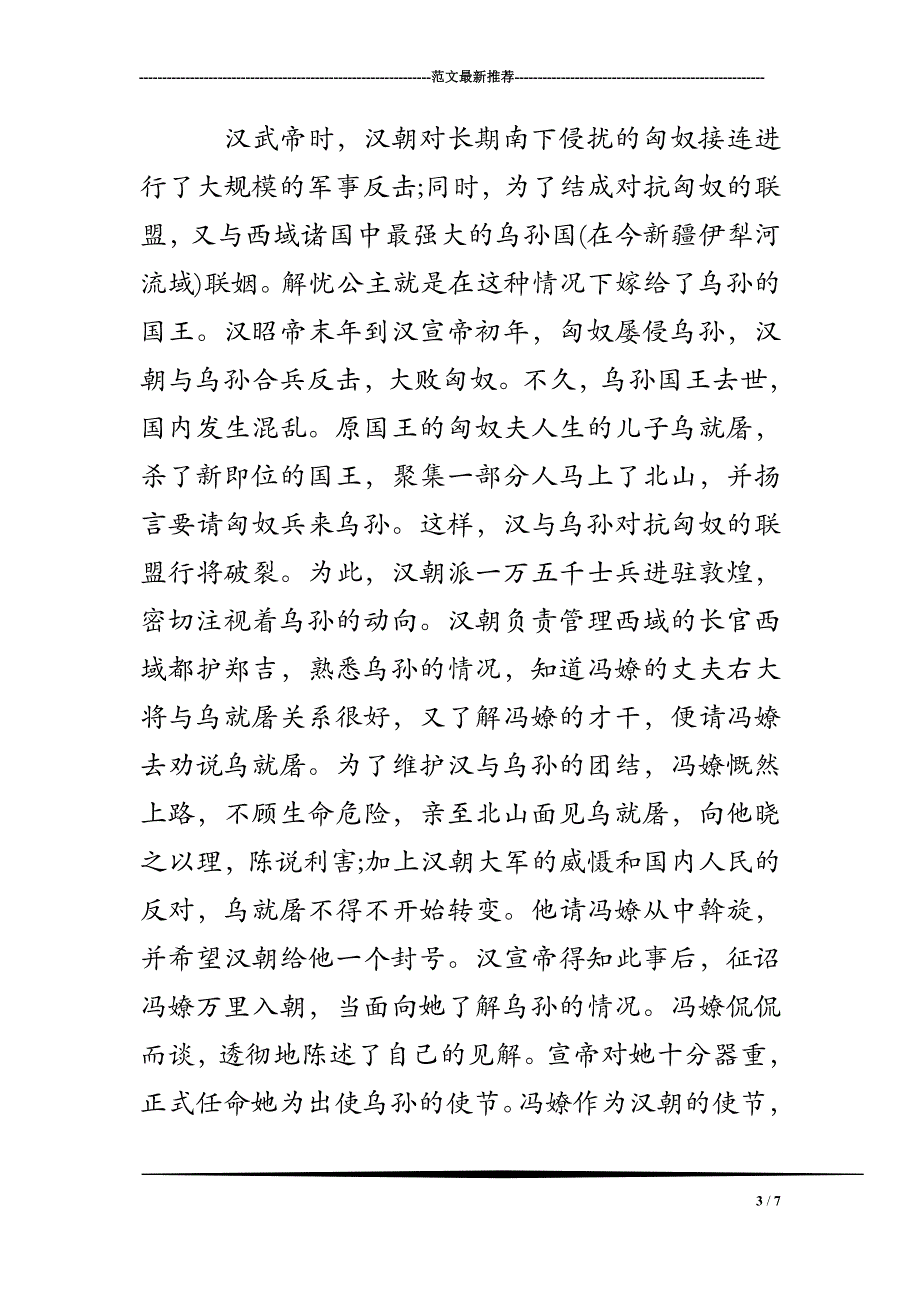 ---------------------------------------------------------------范文最新推荐------------------------------------------------------
汉武帝时，汉朝对长期南下侵扰的匈奴接连进
行了大规模的军事反击;同时，为了结成对抗匈奴的联
盟，又与西域诸国中最强大的乌孙国(在今新疆伊犁河
流域)联姻。解忧公主就是在这种情况下嫁给了乌孙的
国王。汉昭帝末年到汉宣帝初年，匈奴屡侵乌孙，汉
朝与乌孙合兵反击，大败匈奴。不久，乌孙国王去世，
国内发生混乱。原国王的匈奴夫人生的儿子乌就屠，
杀了新即位的国王，聚集一部分人马上了北山，并扬
言要请匈奴兵来乌孙。这样，汉与乌孙对抗匈奴的联
盟行将破裂。为此，汉朝派一万五千士兵进驻敦煌，
密切注视着乌孙的动向。汉朝负责管理西域的长官西
域都护郑吉，熟悉乌孙的情况，知道冯嫽的丈夫右大
将与乌就屠关系很好，又了解冯嫽的才干，便请冯嫽
去劝说乌就屠。为了维护汉与乌孙的团结，冯嫽慨然
上路，不顾生命危险，亲至北山面见乌就屠，向他晓
之以理，陈说利害;加上汉朝大军的威慑和国内人民的
反对，乌就屠不得不开始转变。他请冯嫽从中斡旋，
并希望汉朝给他一个封号。汉宣帝得知此事后，征诏
冯嫽万里入朝，当面向她了解乌孙的情况。冯嫽侃侃
而谈，透彻地陈述了自己的见解。宣帝对她十分器重，
正式任命她为出使乌孙的使节。冯嫽作为汉朝的使节，
3 / 7